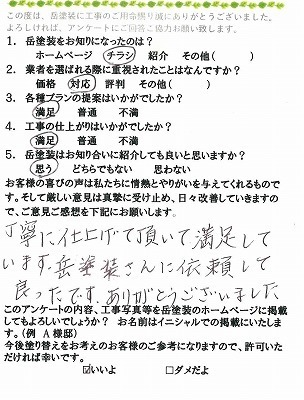 この度は、岳塗装に工事のご用命賜り誠にありがとうございました。
よろしければ、アンケートにご回答ご協力お願い致します。
1. 岳塗装をお知りになったのは？
ホームページ チラシ 紹介 その他( )
2. 業者を選ばれる際に重視されたことはなんですか？
価格 対応 評判 その他( )
3. 各種プランの提案はいかがでしたか？
満足 普通 不満
4. 工事の仕上がりはいかがでしたか？
満足 普通 不満
5. 岳塗装はお知り合いに紹介しても良いと思いますか？
思う どちらでもない 思わない
お客様の喜びの声は私たちに情熱とやりがいを与えてくれるものです。そして厳しい意見は真摯に受け止め、日々改善していきますので、ご意見ご感想を下記にお願いします。
丁寧に仕上げて頂いて満足して
います。岳塗装さんに依頼して
良ったです。ありがとうございました
このアンケートの内容、工事写真等を岳塗装のホームページに掲載
してもよろしいでしょうか？ お名前はイニシャルでの掲載にいたしま
す。(例 A様邸)
今後塗り替えをお考えのお客様のご参考になりますので、許可いた
だければ幸いです。
☑いいよ □ダメだよ